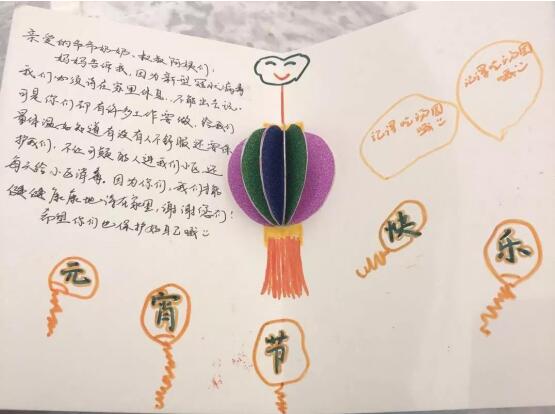 亲爱的爷爷奶奶、叔叔阿姨们，
妈妈告诉我，因为新型冠状病毒
我们必须待在家里休息，不能出去玩。
可是你们却有许多工作要做，给我们
量体温知道有没有人不舒服还要保
护我们，不让可疑人进我们小区，还
每天给小区消毒。因为你们，我们才能
健健康康地待在家里，谢谢您们！
希望你们也保护好自己哦
记得吃汤圆
哦
记得吃汤圆
哦
元宵节快乐